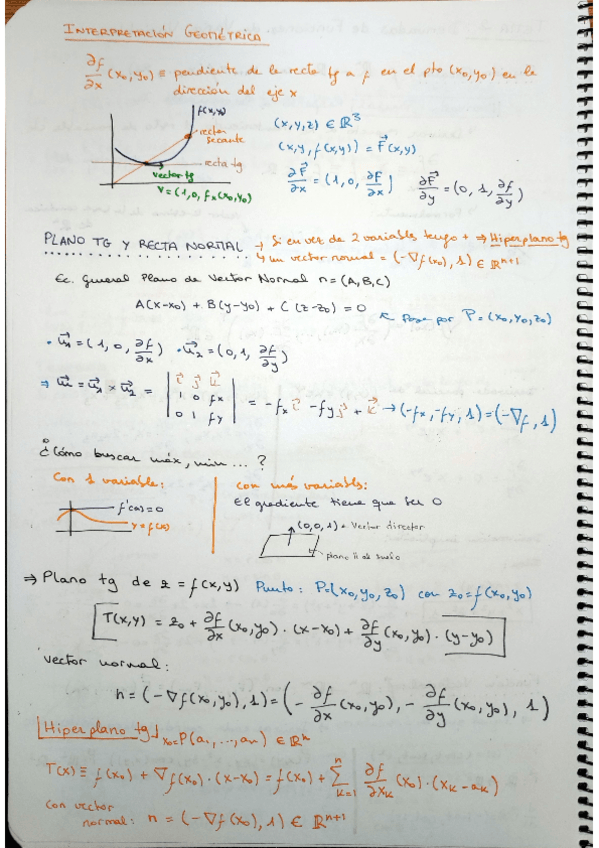 INTERPRETACIÓN GEOMÉTRICA
∂f/∂x (x₀,y₀) ≡ pendiente de la recta tg a f en el pto (x₀,y₀) en la
dirección del eje x
f(x,y)
recta
secante
recta tg
vector tg
v = (1,0, fx(x₀,y₀)
(x,y,z) ∈ ℝ³
(x,y, f(x,y)) = F⃗(x,y)
∂F⃗/∂x = (1,0, ∂f/∂x) ∂F⃗/∂y = (0,1, ∂f/∂y)
PLANO TG Y RECTA NORMAL → Si en vez de 2 variables tengo + ⇒ Hiperplano tg
y un vector normal = (-∇f(x₀),1) ∈ ℝⁿ⁺¹
Ec. General Plano de Vector Normal n = (A,B,C)
A(x-x₀) + B(y-y₀) + C(z-z₀) = 0
Pasa por P = (x₀,y₀,z₀)
• u⃗₁ = (1,0, ∂f/∂x) • u⃗₂ = (0,1, ∂f/∂y)
⇒ u⃗ = u⃗₁ × u⃗₂ = | i⃗ j⃗ k⃗ | 1 0 fx | 0 1 fy | = -fx i⃗ - fy j⃗ + k⃗ → (-fx,-fy,1) = (-∇f,1)
¿Cómo buscar máx, min ... ?
Con 1 variable:
f'(a)=0
y=f(x)
con más variables:
El gradiente tiene que ser 0
(0,0,1) = Vector director
plano || al suelo
⇒ Plano tg de z = f(x,y) Punto: P=(x₀,y₀,z₀) con z₀=f(x₀,y₀)
T(x,y) = z₀ + ∂f/∂x (x₀,y₀) · (x-x₀) + ∂f/∂y (x₀,y₀) · (y-y₀)
vector normal:
n = (-∇f(x₀,y₀),1) = (- ∂f/∂x (x₀,y₀), - ∂f/∂y (x₀,y₀), 1)
Hiperplano tg x₀=P(a₁,...,aₙ) ∈ ℝⁿ
T(x) ≡ f(x₀) + ∇f(x₀)·(x-x₀) = f(x₀) + ∑ⁿₖ₌₁ ∂f/∂xₖ (x₀)·(xₖ-aₖ)
con vector
normal: n = (-∇f(x₀),1) ∈ ℝⁿ⁺¹